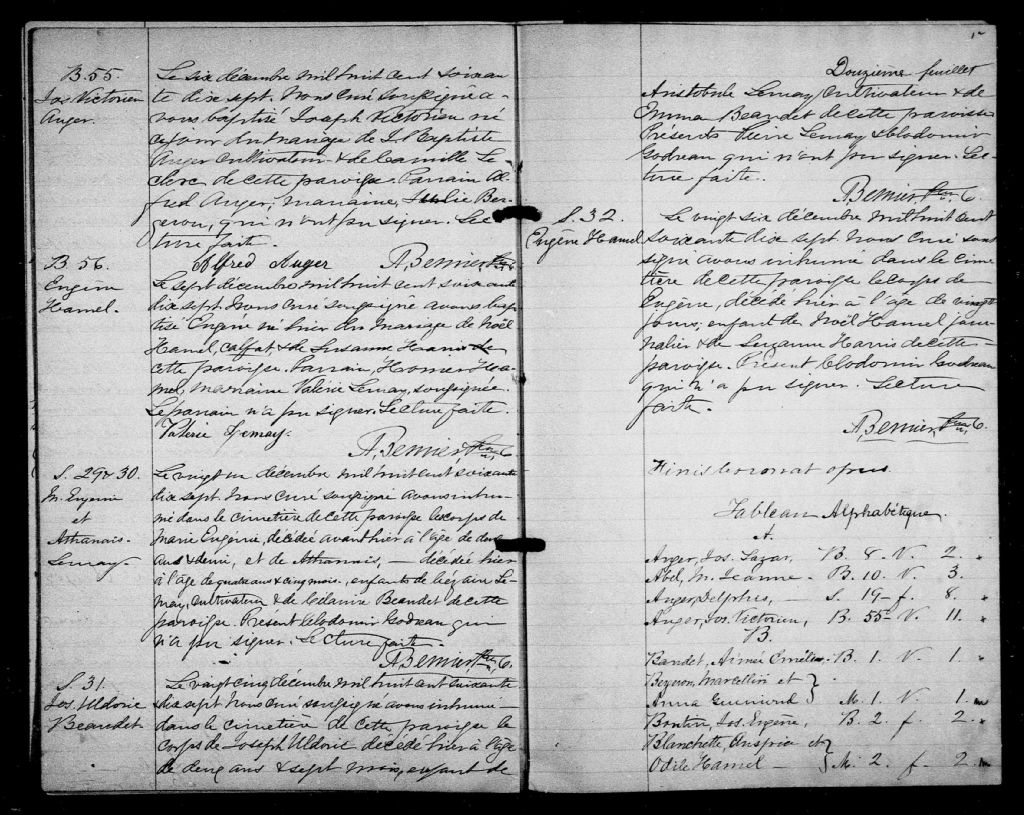 B. 55.
Jos. Victorien
Anger.
Le six décembre mil huit cent soixan
te dix sept. Nous curé soussigné a-
vons baptisé Joseph Victorien né
ce jour du mariage de J. Bte
Anger Cultivateur & de Camille Le
clerc de cette paroisse. Parrain Al
fred Anger, marraine, Julie Ber
gerou, qui n'ont pu signer. Lec
ture faite.
Alfred Auger A, Bernier
B. 56
Eugène
Hamel.
Le sept décembre mil huit cent soixante
dix sept. Nous curé soussigné avons bap
tisé Eugène né hier du mariage de Noël
Hamel, calfat, & de Susanne Harris de
cette paroisse. Parrain, Homer Ha
mel, marraine Valérie Lemay, soussignée.
Le parrain n'a pu signer. Lecture faite.
Valérie Lemay.
A, Bernier
S. 29 & 30.
M. Eugénie
et
Athanais-
Lemay-
Le vingt un décembre mil huit cent soixante
dix sept. Nous curé soussigné avons inhu-
mé dans le cimetière de cette paroisse les corps de
Marie Eugénie, décédée avant hier à l'âge de deux
ans & demi, et de Athanais, — décédé hier
à l'âge de quatre ans & cinq mois, enfants de Le
may, Cultivateur & de Beaudet de cette
paroisse. Présent Clodomir Godreau qui
n'a pu signer. Lecture faite.
A, Bernier
S. 31.
Jos. Uldoric
Beaudet
Le vingt cinq décembre mil huit cent soixante
dix sept Nous curé soussigné avons inhumé -
dans le cimetière de cette paroisse le
corps de Joseph Uldoric décédé hier à l'âge
de deux ans & sept mois, enfant de
Douzième feuillet
Aristobule Lemay Cultivateur & de
Emma Beaudet de cette paroisse
Présents Pierre Lemay & Clodomir
Godreau qui n'ont pu signer. Lec
ture faite.
Bernier
S. 32.
Eugène Hamel
Le vingt six décembre mil huit cent
soixante dix sept. Nous curé sous
signé avons inhumé dans le cime
tière de cette paroisse le corps de
Eugène, décédé hier à l'âge de vingt
jours, enfant de Noël Hamel jour
nalier & de Suzanne Harris de cette -
paroisse. Présent Clodomir Godreau
qui n'a pu signer. Lecture
faite.
A, Bernier
Finis coronat opus.
Tableau Alphabétique.
A.
Anger, Jos. Lazar, B. 8. V. 2. "
Abel, M. Jeanne - B. 10. V. 3.
Anger, Delphis, — S. 19 - f. 8. "
Anger, Jos. Victorien, B. 55 - V. 11. "
B.
Baudet, Aimée - B. 1. V. 1. "
Bergeron, Marcellin et
Anna } M. 1. V. 1.
Jos. Eugène, B. 2. f. 2. "
Blanchette, et
Odile Hamel — } M. 2. f. 2.